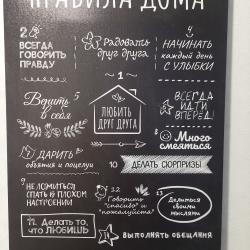 ПРАВИЛА ДОМА
2
ВСЕГДА
ГОВОРИТЬ
ПРАВДУ
Радовать
друг друга
4
НАЧИНАТЬ
каждый день
С УЛЫБКИ
1
ЛЮБИТЬ
ДРУГ ДРУГА
Верить в
себя
5
ВСЕГДА
ИДТИ
ВПЕРЁД!
8
Много
смеяться
7
ДАРИТЬ
объятия и поцелуи
10
ДЕЛАТЬ СЮРПРИЗЫ
9
НЕ ЛОЖИТЬСЯ
СПАТЬ В ПЛОХОМ
НАСТРОЕНИИ
12
Говорить
"спасибо" и
"пожалуйста"
13
Делиться
своими
мыслями
11. Делать то,
что ЛЮБИШЬ
ВЫПОЛНЯТЬ ОБЕЩАНИЯ